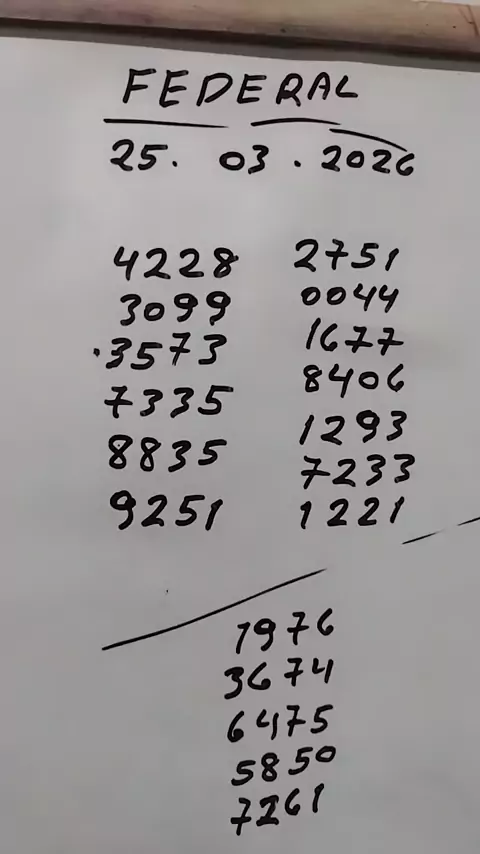 FEDERAL
25. 03. 2026
4228 2751
3099 0044
3573 1677
7335 8406
8835 1293
9251 7233
1221
1976
3674
6475
5850
7261